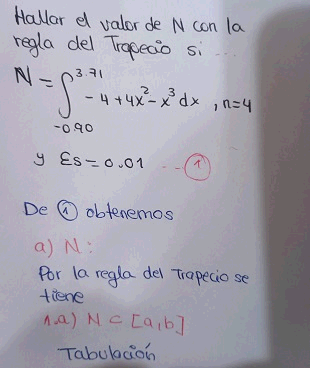 Hallar el valor de N con la
regla del Trapecio si ...
N = ∫_{-0.90}^{3.71} -4 + 4x² - x³ dx , n=4
y Es = 0.01 --- ①
De ① obtenemos
a) N:
Por la regla del Trapecio se
tiene
1.a) N ⊂ [a,b]
Tabulación